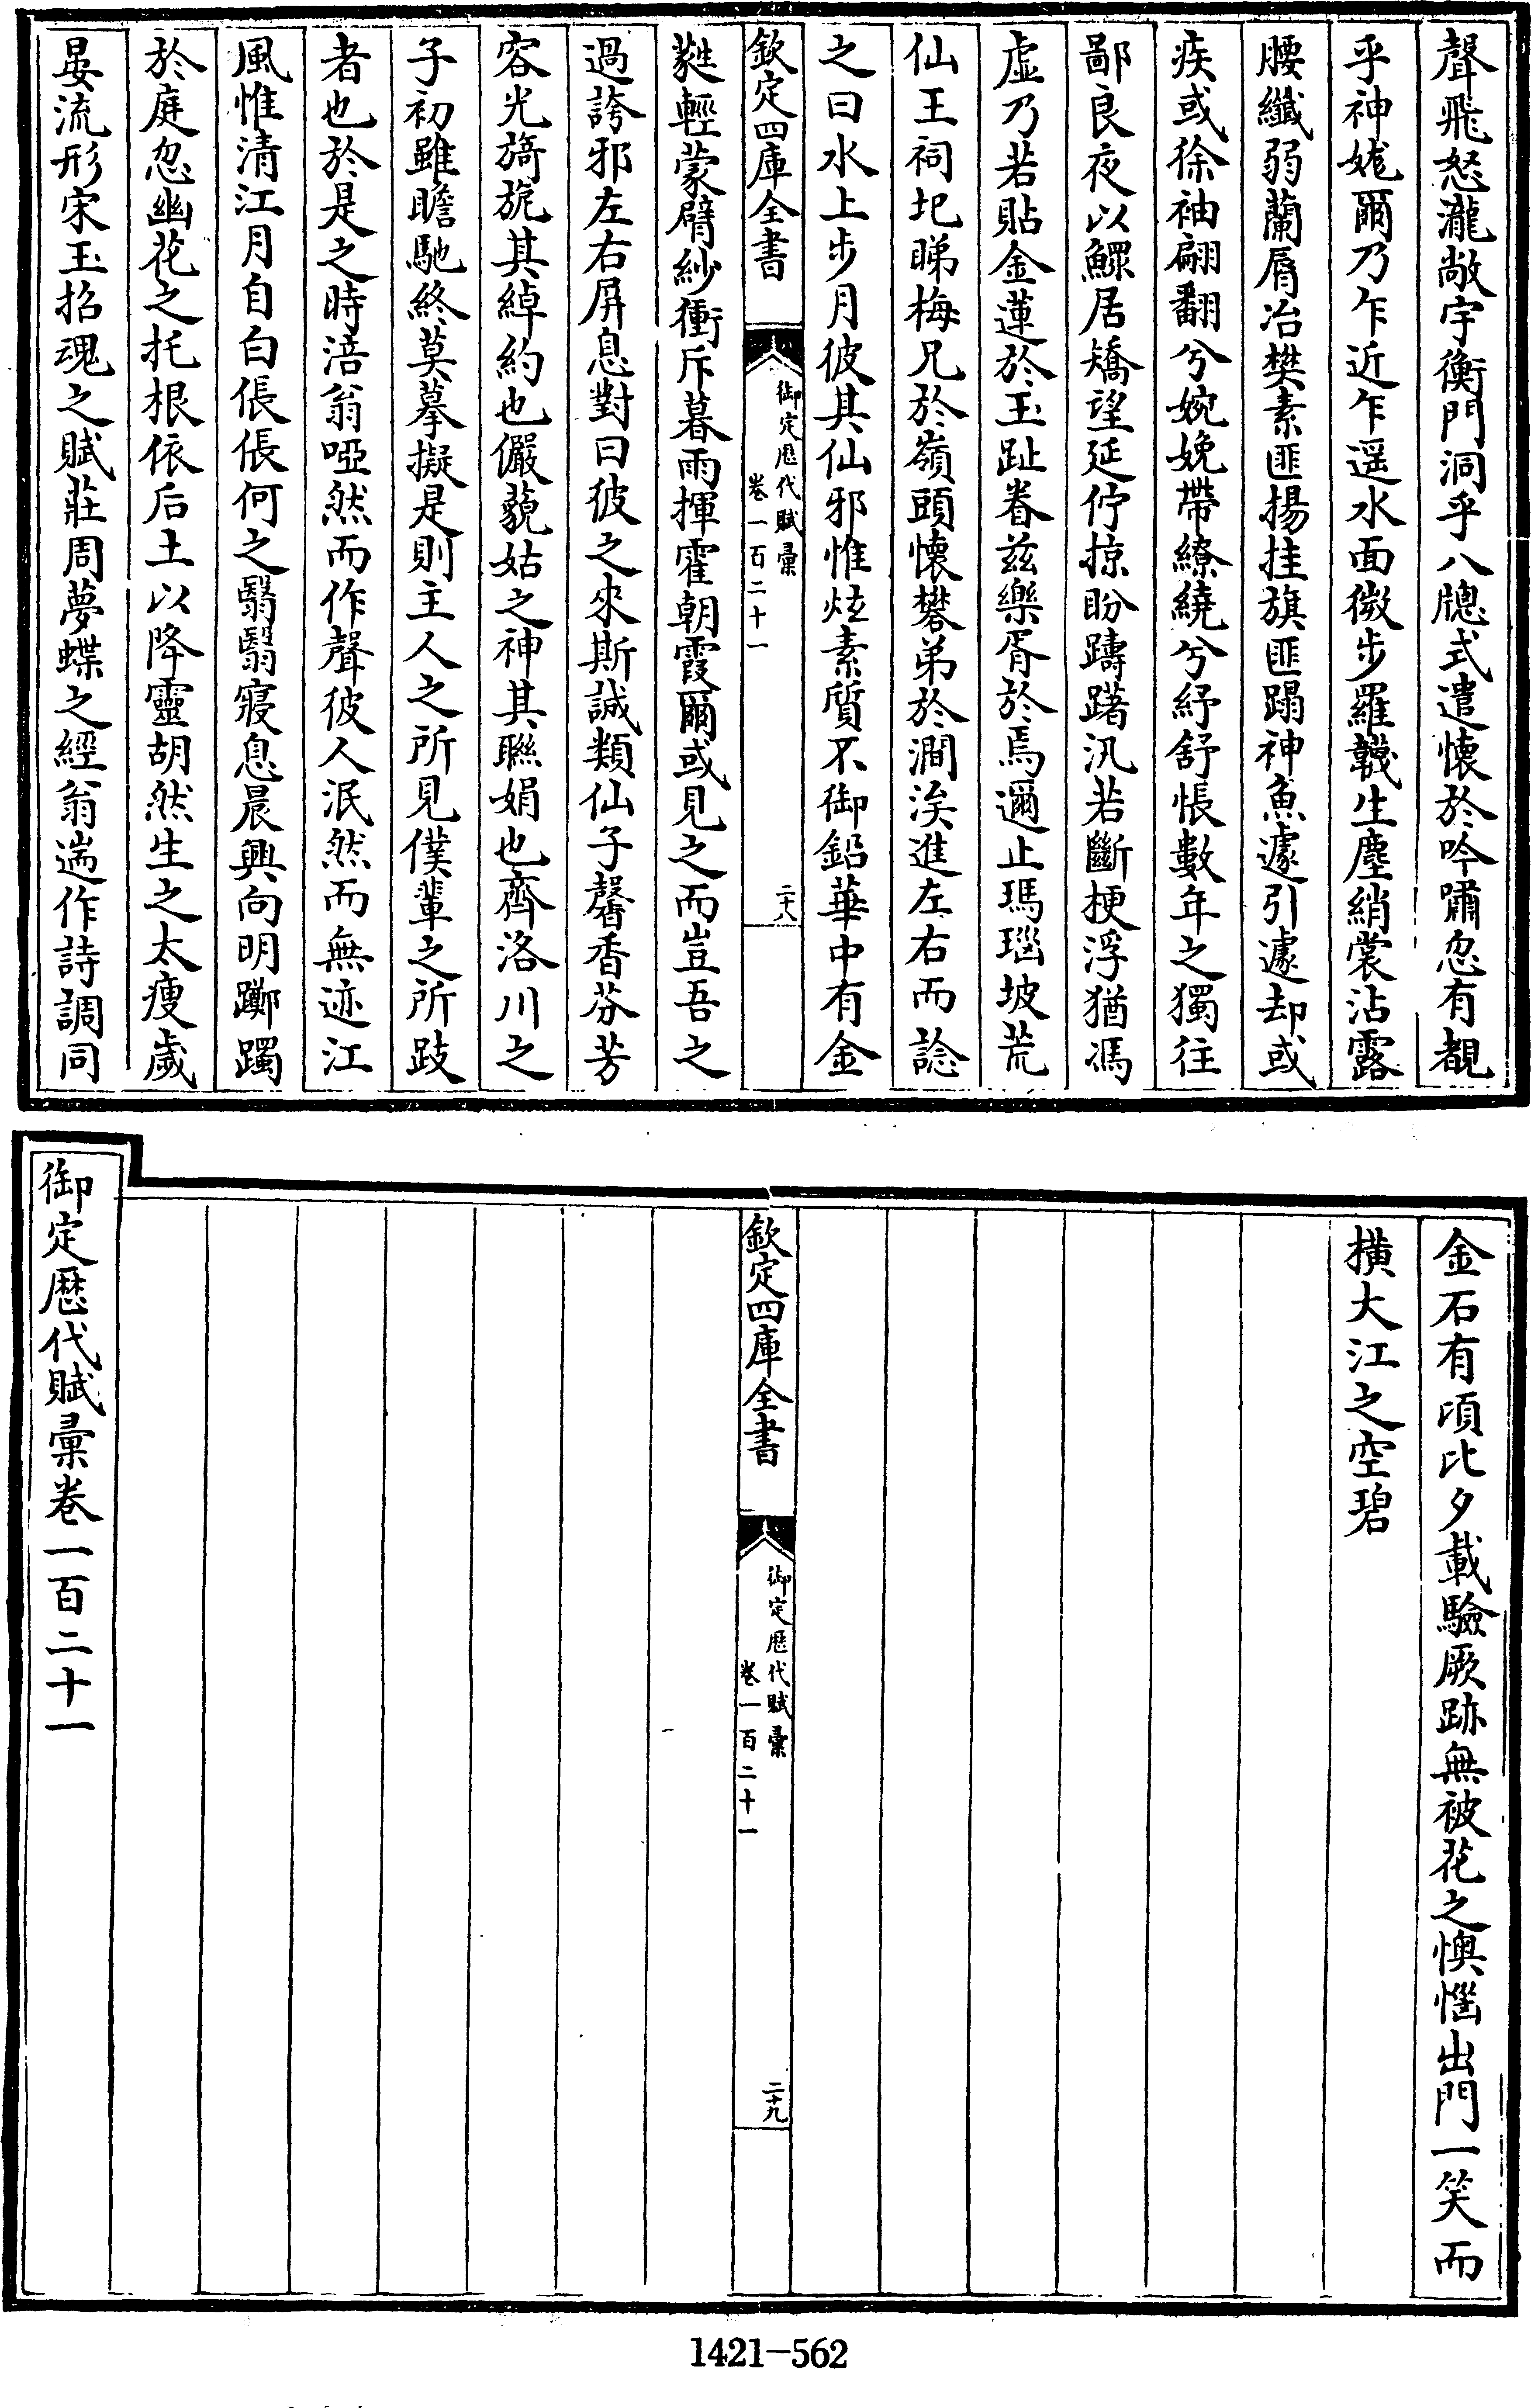 聲飛怒瀧敞宇衡門洞乎八牕式遣懷於吟嘯忽有覩
乎神姚爾乃乍近乍遥水面微步羅韈生塵綃裳沾露
腰纖弱蘭脣冶樊素匪揚挂旗匪蹋神魚遽引遽却或
疾或徐袖翩翻兮婉娩帶繚繞兮紓舒悵數年之獨往
鄙良夜以鰥居矯望延佇掠盼躊躇汎若斷梗浮猶馮
虛乃若貼金蓮於玉趾眷兹樂胥於焉邇止瑪瑙坡荒
仙王祠圯睇梅兄於嶺頭懷礬弟於澗涘進左右而諗
之曰水上步月彼其仙邪惟炫素質不御鉛華中有金
欽定四庫全書
御定歷代賦彙
卷一百二十一
二十八
蕤輕蒙臂紗衝斥暮雨揮霍朝霞爾或見之而豈吾之
過誇邪左右屏息對曰彼之來斯誠類仙子馨香芬芳
容光旖旎其綽約也儼藐姑之神其聯娟也齊洛川之
子初雖瞻馳終莫摹擬是則主人之所見僕輩之所跂
者也於是之時涪翁啞然而作聲彼人泯然而無迹江
風惟清江月自白倀倀何之翳翳寢息晨興向明躑躅
於庭忽幽花之托根依后土以降靈胡然生之太瘦歲
晏流形宋玉招魂之賦莊周夢蝶之經翁遄作詩調同
金石有頃比夕載驗厥跡無被花之懊惱出門一笑而
橫大江之空碧
欽定四庫全書
御定歷代賦彙
卷一百二十一
二十九
御定歷代賦彙卷一百二十一
1421-562